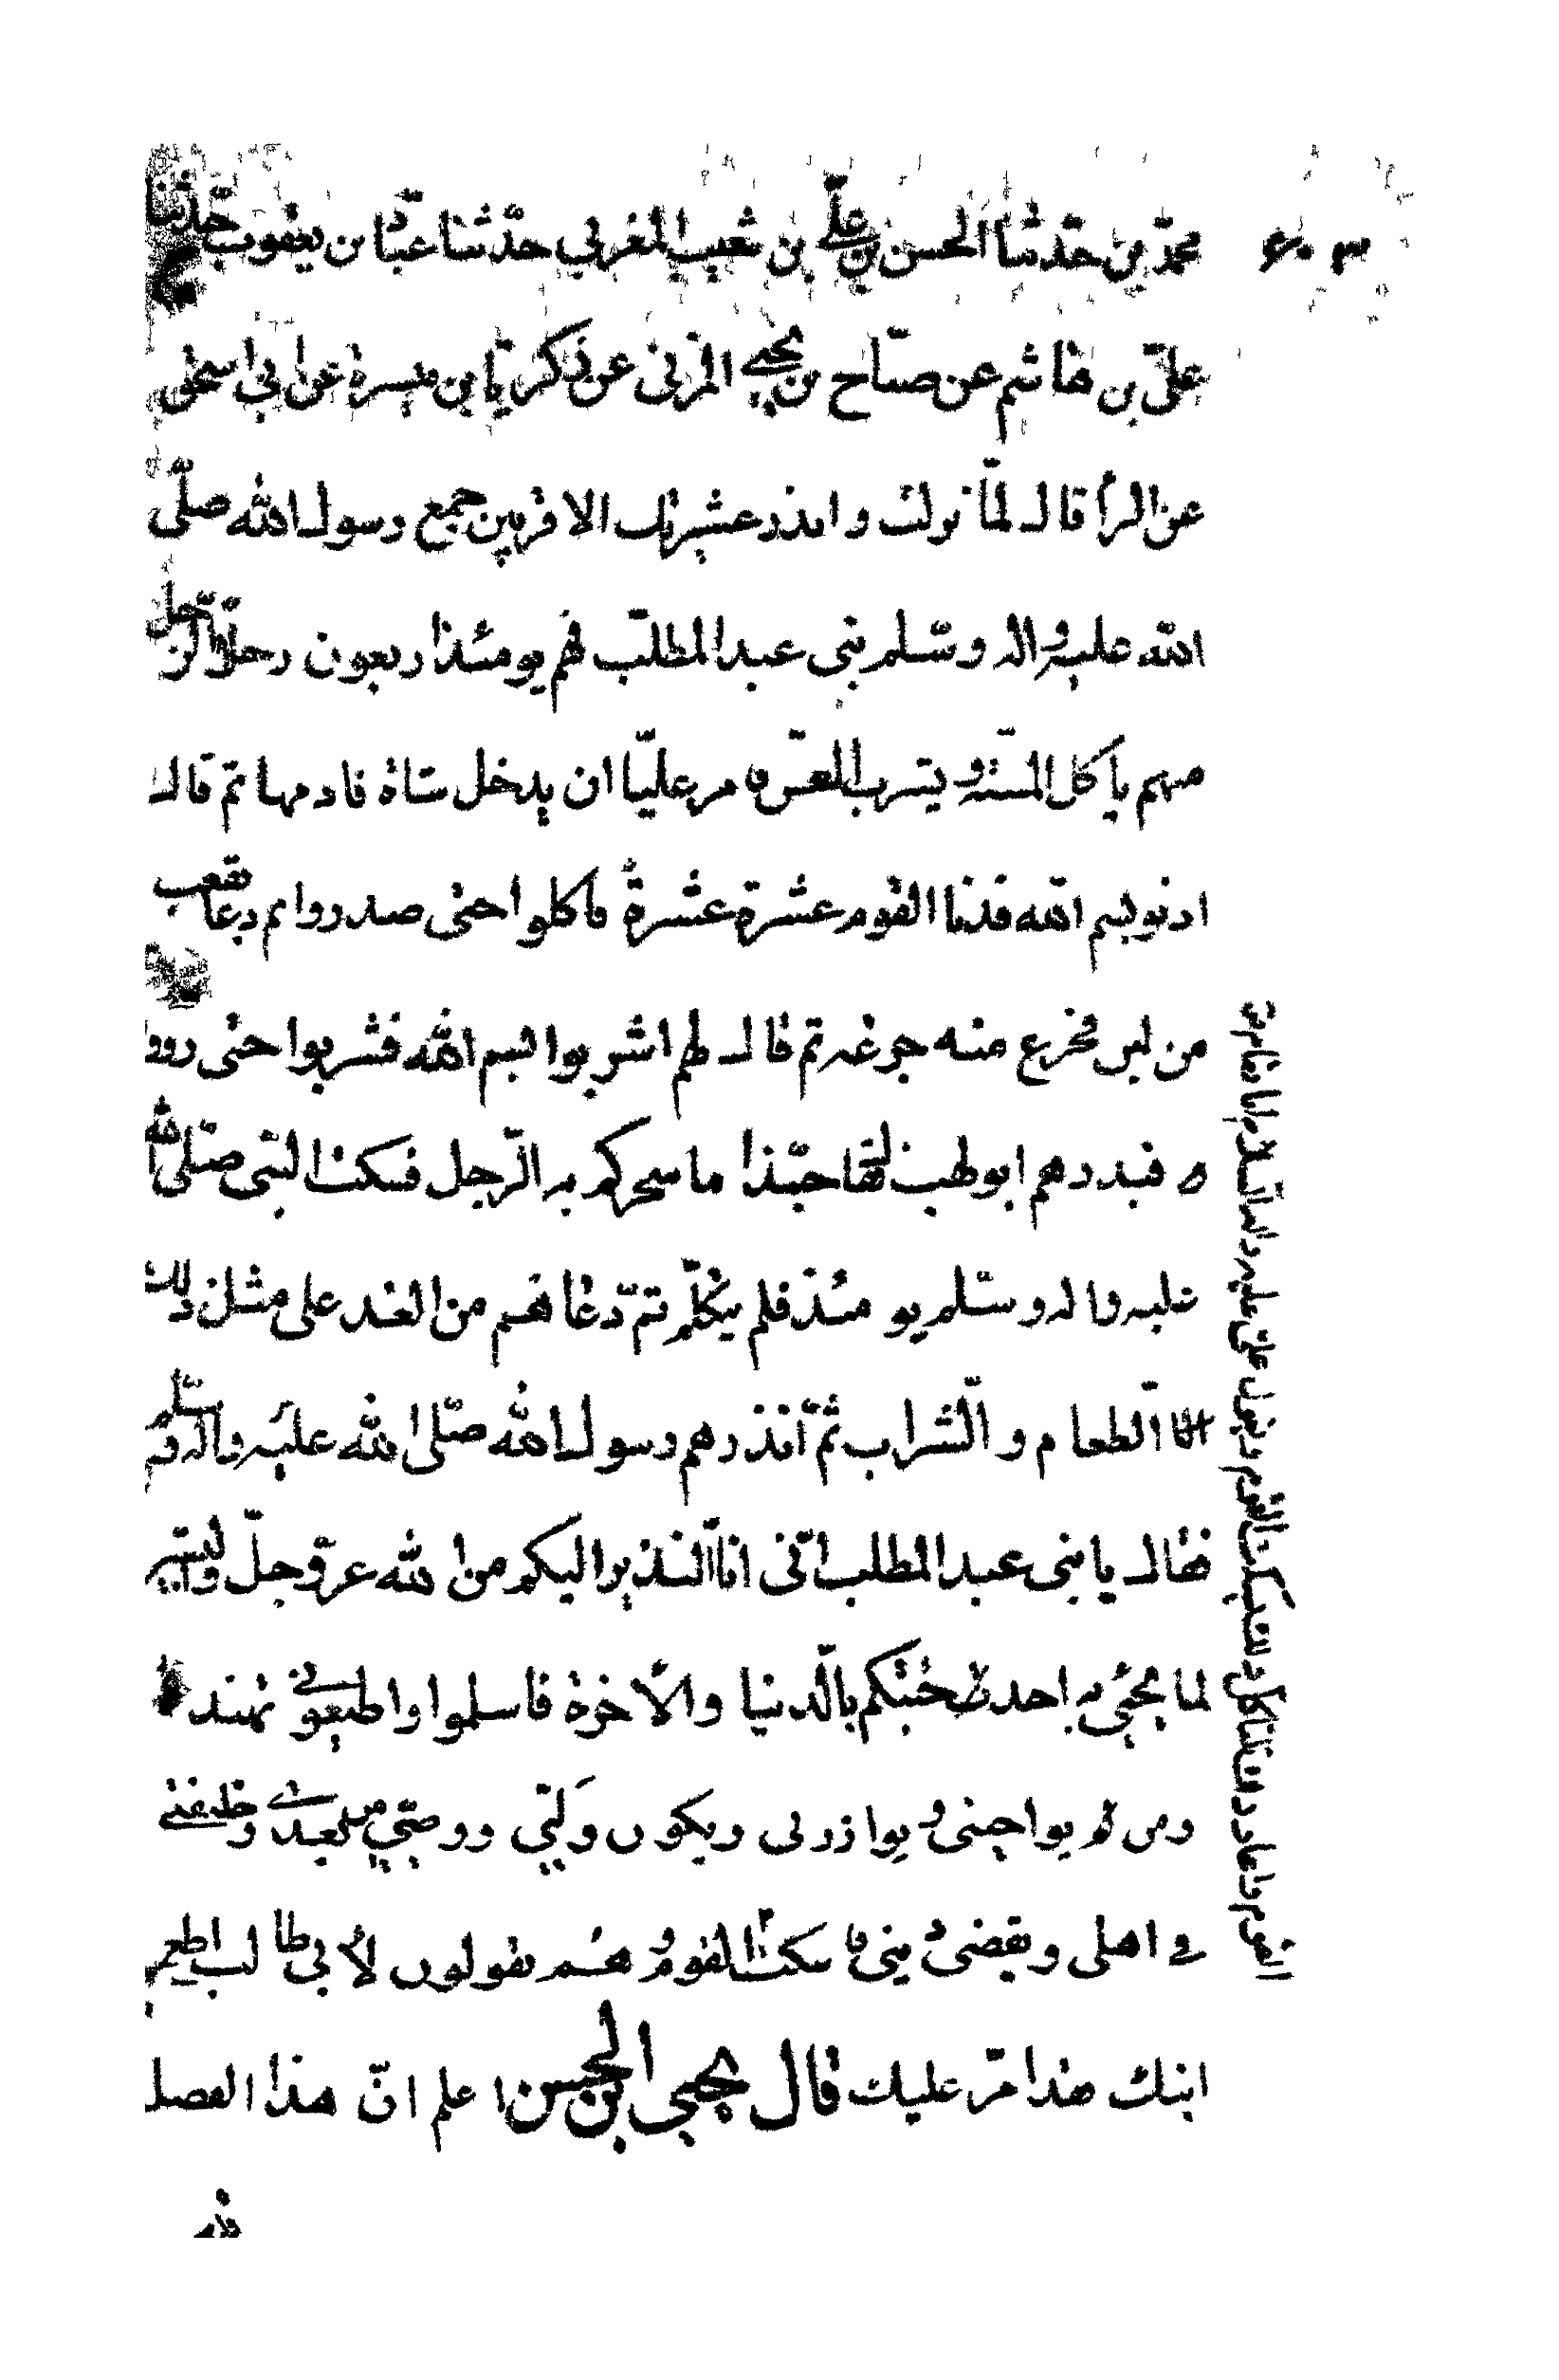 محمد بن حدثنا الحسن بن علي بن شعيب المغربي حدّثنا عبّاد بن يعقوب حدّثنا
علىّ بن هاشم عن صبّاح بن يحيى المزنى عن زكريّا بن ميسرة عن ابي اسحٰق
عن البرأ قال لمّا نزلت وانذر عشيرتك الاقربين جمع رسول الله صلّى
الله عليه واله وسّلم بنى عبدالمطلّب فهم يومئذ اربعون رجلاً الرّجل
منهم ياكل المسنّة ويشرب العسّ فامر عليّا ان يدخل شاة فادمها ثم قال
ادنو بسم الله فدنا القوم عشرة عشرة فاكلوا حتى صدروا ثم دعا بقعب
من لبن فجرع منه جرعه ثم قال لهم اشربوا بسم الله فشربوا حتى روو
ه فبدرهم ابولهب فقا حبّذا ما سحركم به الرّجل فسكت النبّى صلّى الله
عليه واله وسّلم يومئذ فلم يتكلّم ثمّ دعاهم من الغد على مثل ذلك
الطّعام والشّراب ثمّ أنذرهم رسول الله صلّى الله عليه واله وسلّم
فقال يا بنى عبدالمطلب انّى انا النّذير اليكم من الله عزّوجلّ والبشير
لما يجئ به احد جئتكم بالّدنيا والاٰخرة فاسلموا واطيعوني تهتدوا
ومن يواخينى ويوازرنى ويكون وليّي ووصيّي بعدي وخليفتي
في اهلى ويقضى دينى فاسكت القوم وهم يقولون لأبي طالب اطع
ابنك هذا امّر عليك قال يحيى ابن الحسن اعلم انّ هذا الفصل